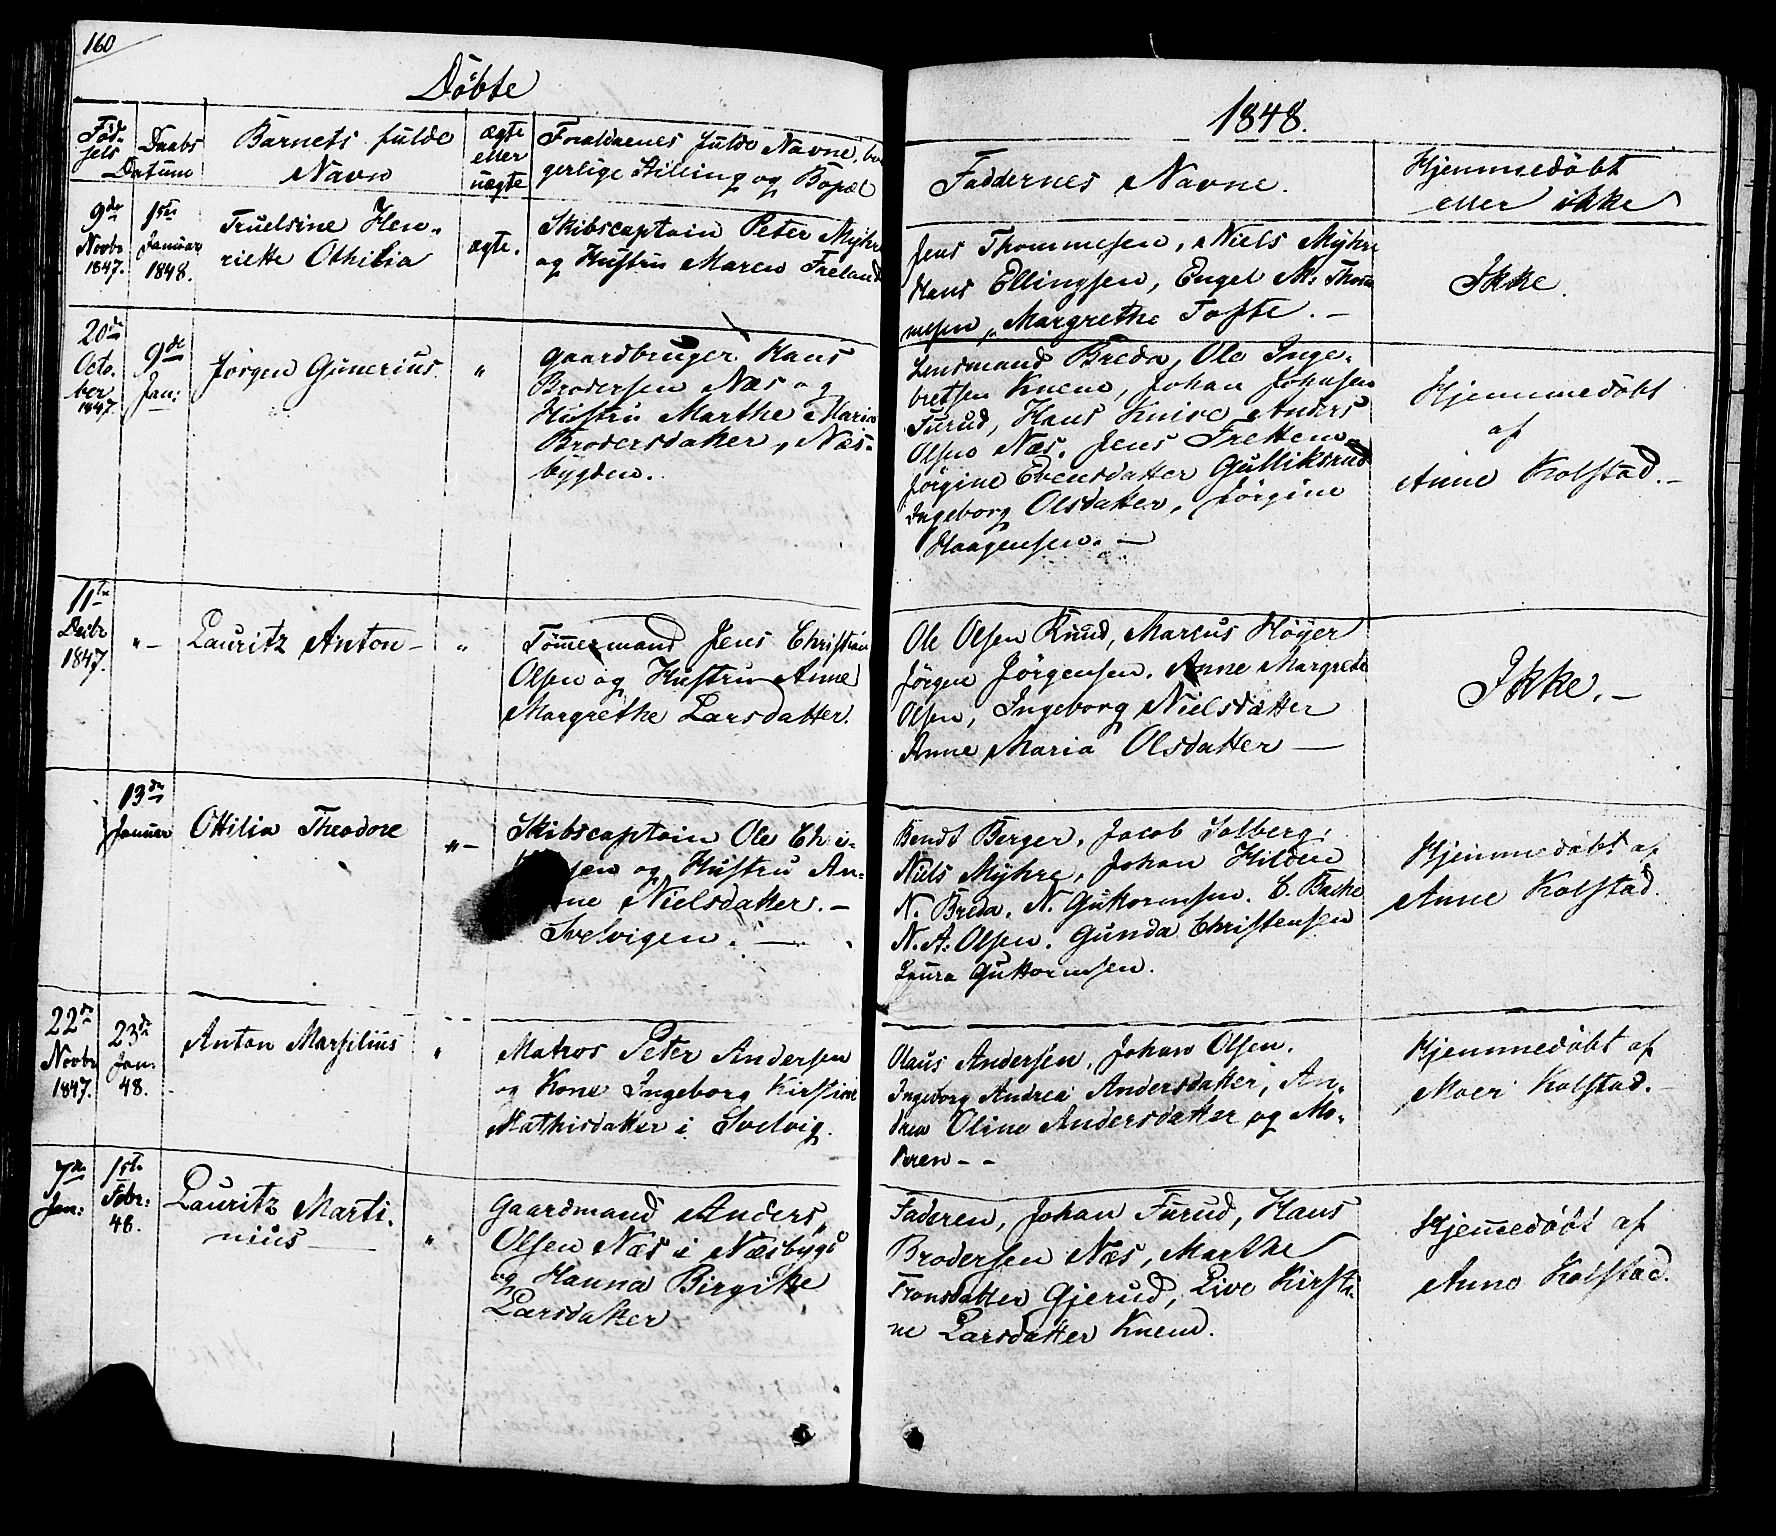 160
Döbte
1848.
Fød-
sels
Daabs
Datum
Barnets fulde
Navn
ægte
eller
uægte
Foraldrenes fulde Navne, bor
gerlige Stilling og Bopæl
Faddernes Navne.
Hjemmedöbt
eller ikke
9de
Novbr
1847.
1ste
Januar
1848.
Truelsine Hen-
riette Othilia
ægte.
Skibscaptain Peter Myhre
og Hustru Maren
Jens Thommesen, Niels Myhre
Hans Ellingsen, Engel M: Thom
mesen, Margrethe Tofte. –
Ikke.
20de
Octo.
ber
1847
9de
Jan:
Jørgen Gunerius
"
Gaardbruger Hans
Brodersen Næs og
Hustru Marthe Maria
Brodersdatter, Næs-
bygden.
Lensmand Breda, Ole Inge-
bretsen Knem, Johan Johnsen
Furud, Hans Knive Anders
Olsen Næs. Jens Trettem
Jörgine Evensdatter Gulliksrud
Ingeborg Olsdatter, Jörgine
Haagensen. –
Hjemmedöbt
af
Anne Kolstad. –
11te
Decbr
1847.
" –
Lauritz Anton –
"
Tömmermand Jens Christian
Olsen og Hustru Anne
Margrethe Larsdatter.
Ole Olsen Knud, Marcus Höyer
Jörgen Jörgensen. Anne Margrete
Olsen, Ingeborg Nielsdatter
Anne Maria Olsdatter –
Ikke. –
13de
Januar
Ottilia Theodore
" –
Skibscaptain Ole Chri-
sen og Hustru An-
ne Nielsdatter. –
Svelvigen. –
Bendt Berger, Jacob Solberg,
Niels Myhre, Johan Hilden
N. Breda, N. Guttormsen. C. Bache
N. A. Olsen. Gunda Christensen
Laura Guttormsen.
Hjemmedöbt af
Anne Kolstad.
22de
Novbr
1847.
23de
Jan:
48.
Anton Marsilius
"
Matros Peter Andersen
og Kone Ingeborg Kirstine
Mathisdatter i Svelvig.
Olaus Andersen, Johan Olsen.
Ingeborg Andrea Andersdatter, An-
drea Oline Andersdatter og Mo-
deren – –
Hjemmedöbt af
Moer Kolstad. –
7de
Jan:
1ste
Febr.
48.
Lauritz Marti-
nius –
"
Gaardmand Anders
Olsen Næs i Næsbygd
og Hanna Birgitte
Larsdatter
Faderen, Johan Furud, Hans
Brodersen Næs, Marthe
Fransdatter Gjerud, Live Kirsti-
ne Larsdatter Knem.
Hjemmedöbt af
Anne Kolstad.